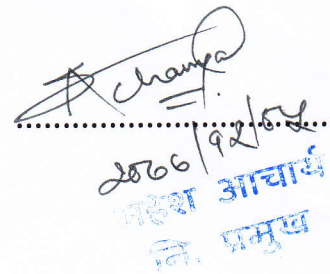 Acharya
२०७७/१२/०५
महेश आचार्य
नि. प्रमुख